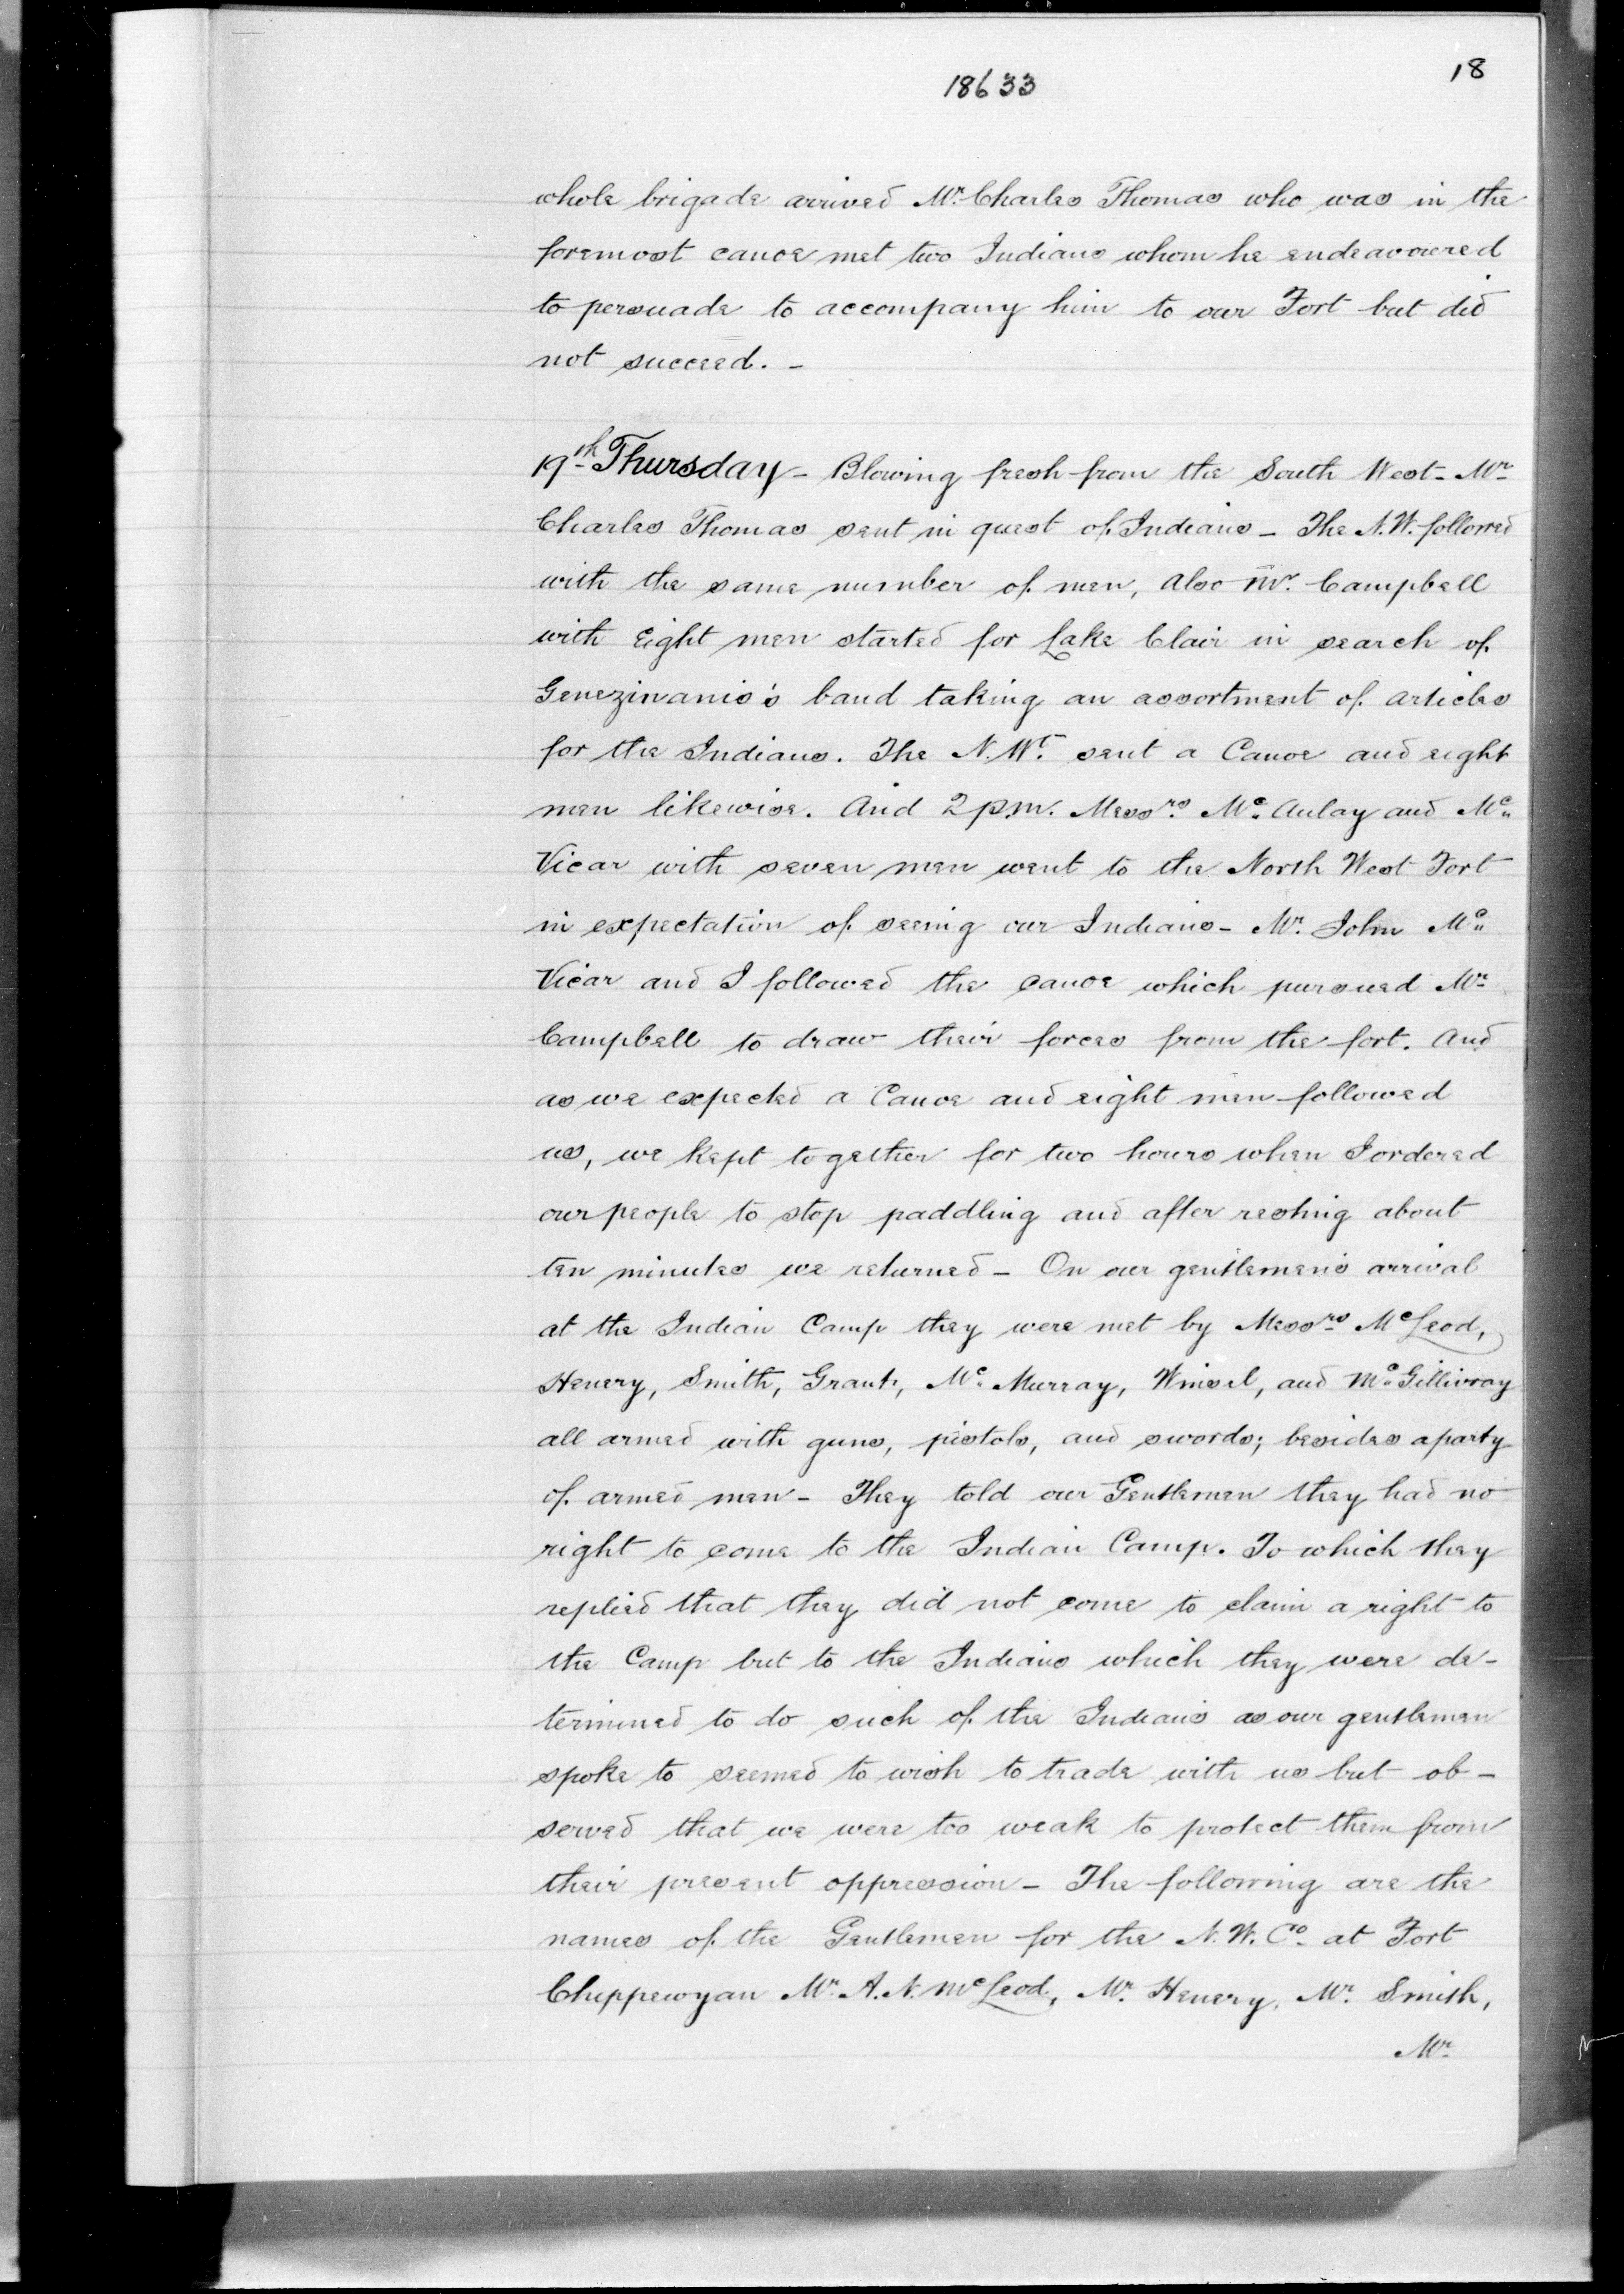 18633
18
whole brigade arrived Mr. Charles Thomas who was in the
foremost canoe met two Indians whom he endeavoured
to persuade to accompany him to our Fort but did
not succeed. -
19th Thursday - Blowing fresh from the South West - Mr.
Charles Thomas sent in quest of Indians - The N.W. followed
with the same number of men, also Mr. Campbell
with Eight men started for Lake Clair in search of
Genezinanis's band taking an assortment of articles
for the Indians. The N.Wt. sent a Canoe and eight
men likewise. And 2 p.m. Messrs. Mc Aulay and Mc
Vicar with seven men went to the North West Fort
in expectation of seeing our Indians - Mr. John Mc
Vicar and I followed the canoe which pursued Mr.
Campbell to draw their forces from the fort. And
as we expected a Canoe and eight men followed
us, we kept together for two hours when I ordered
our people to stop paddling and after resting about
ten minutes we returned - On our gentlemen's arrival
at the Indian Camp they were met by Messrs McLeod,
Henery, Smith, Grant, Mc Murray, Winsel, and McGillivray
all armed with guns, pistols, and swords; besides a party
of armed men - They told our Gentlemen they had no
right to come to the Indian Camp. To which they
replied that they did not come to claim a right to
the Camp but to the Indians which they were de-
termined to do such of the Indians as our gentlemen
spoke to seemed to wish to trade with us but ob-
served that we were too weak to protect them from
their present oppression - The following are the
names of the Gentlemen for the N.W. Co. at Fort
Chippewyan Mr. A. N. McLeod, Mr. Henery, Mr. Smith,
Mr.